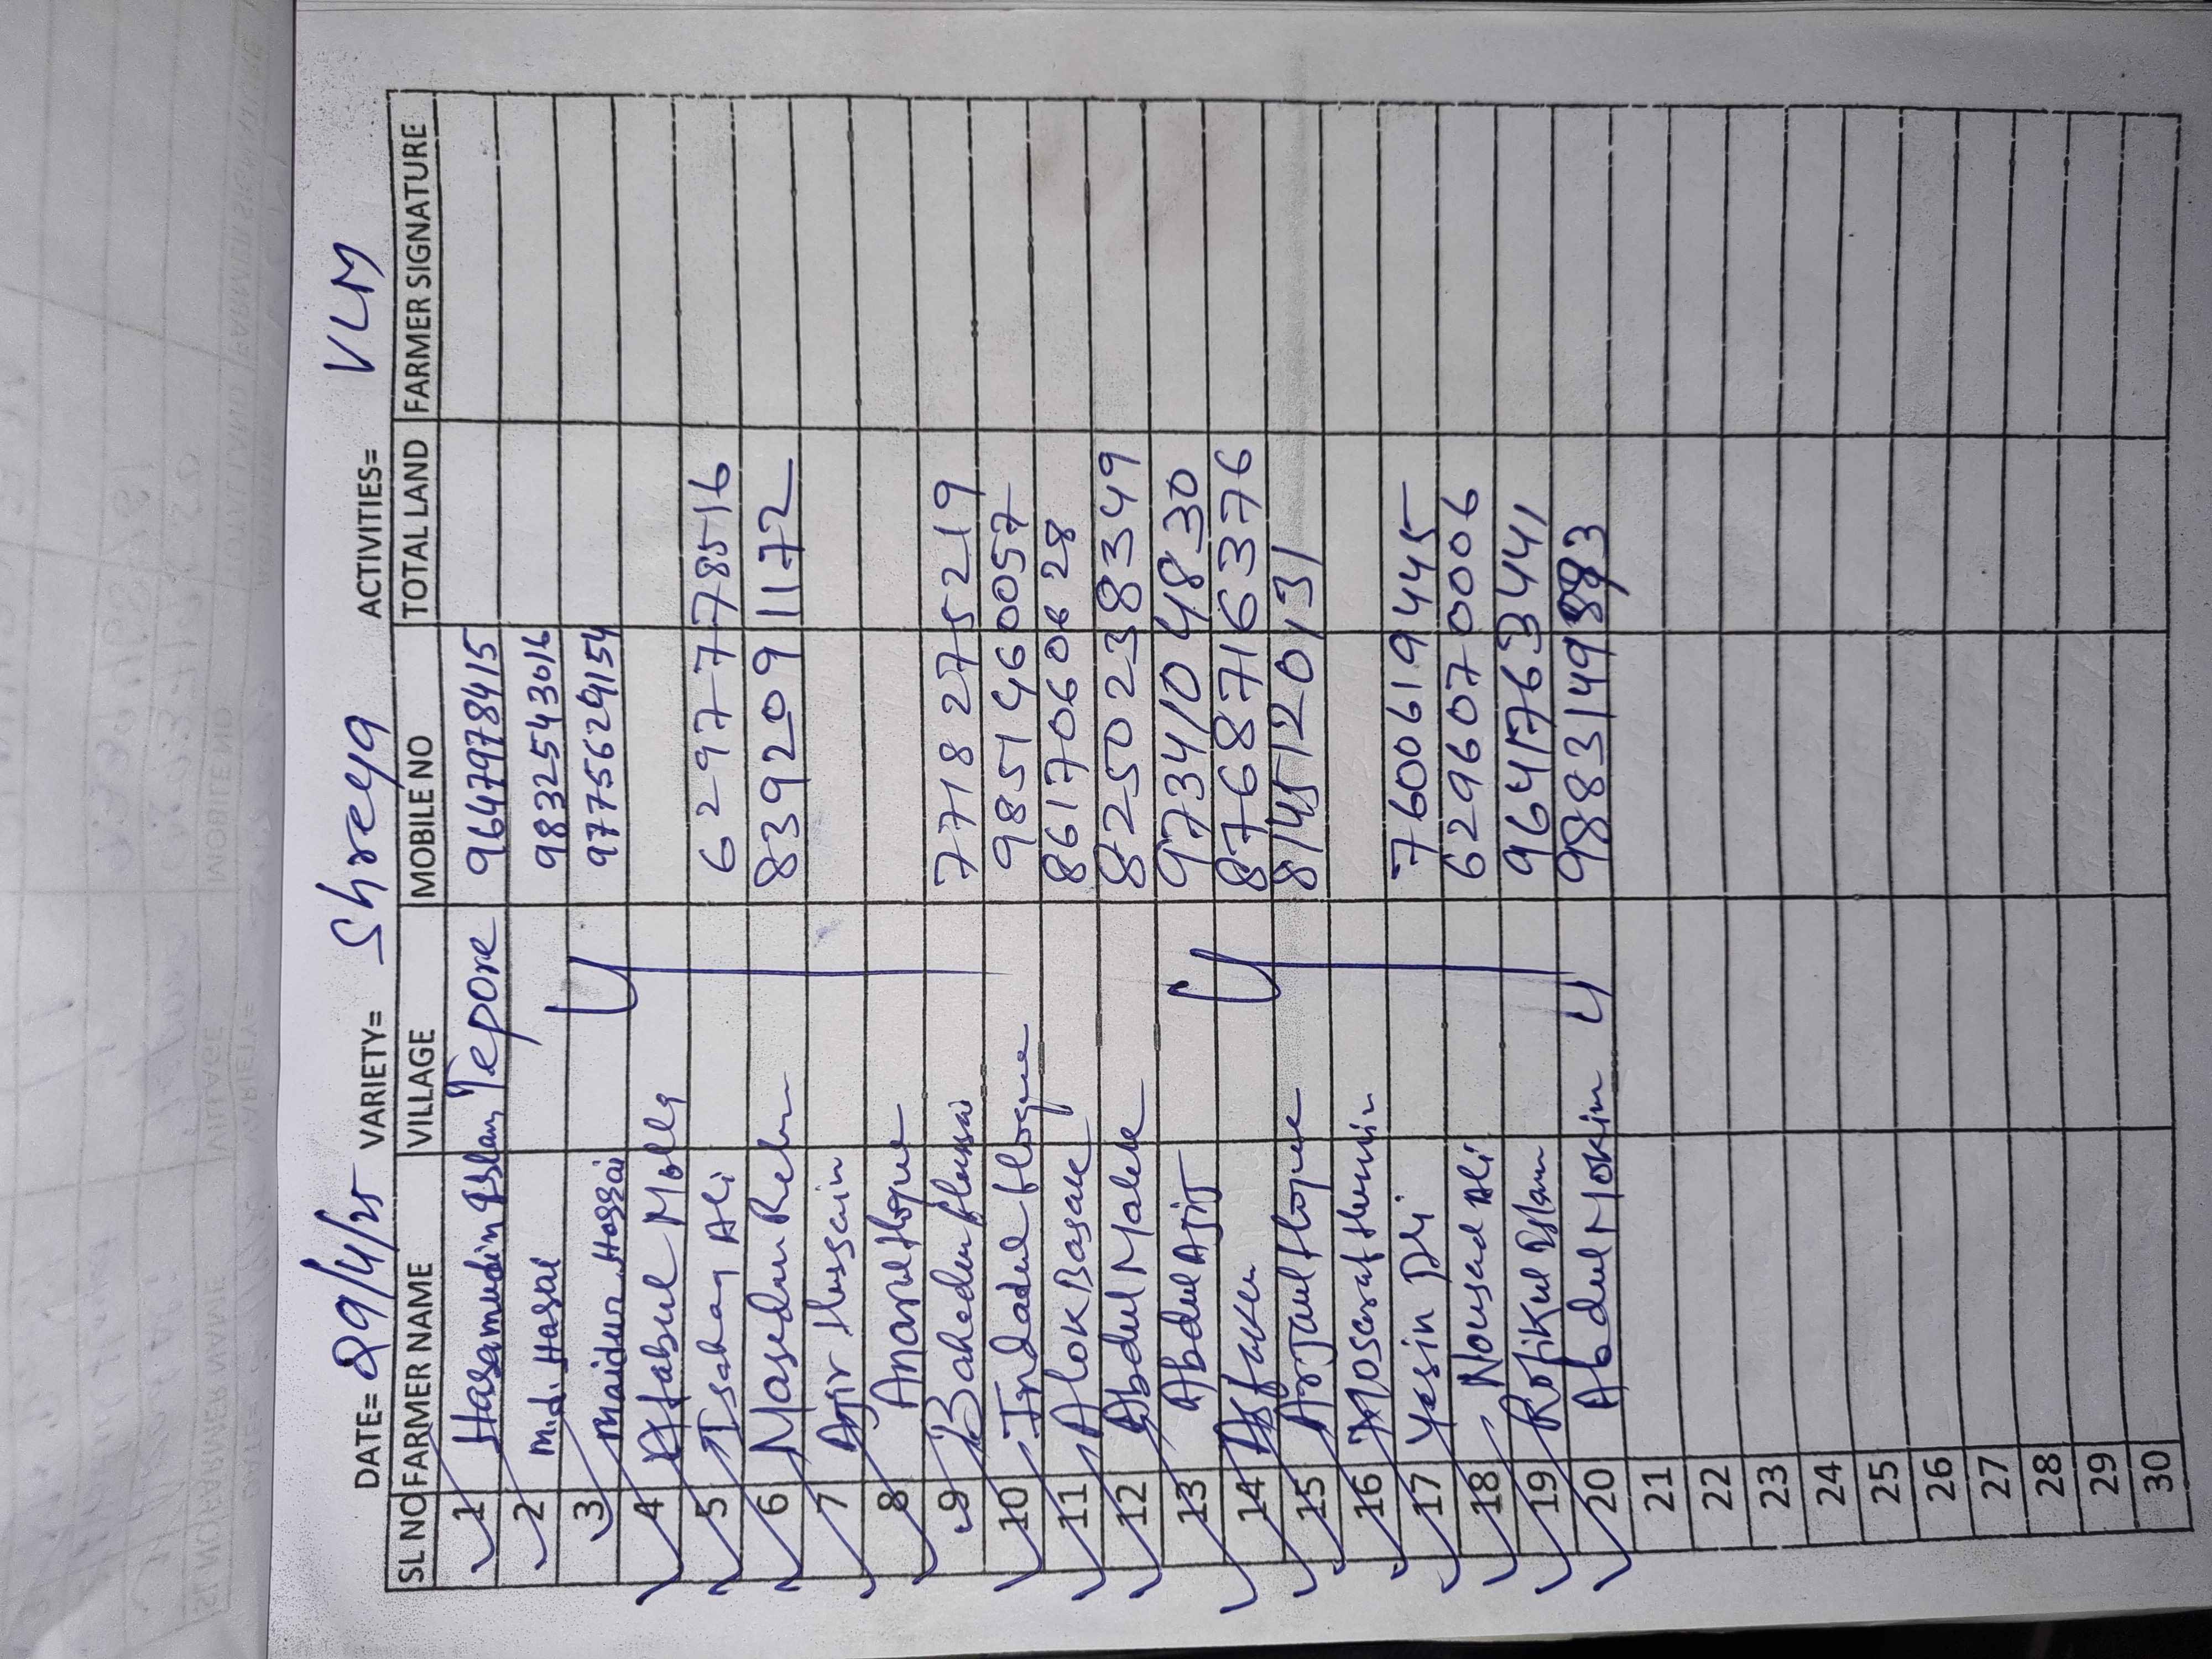 DATE= 29/4/25 VARIETY= Shreya ACTIVITIES= VLM
SL NO FARMER NAME VILLAGE MOBILE NO TOTAL LAND FARMER SIGNATURE
1 Hasamuddin Islam Tepore 9647978415
2 Md. Hasae 9832543016
3 Maidur Hossai 9775629154
4 Aftabul Molla
5 Isahay Ali 6297778516
6 Masedur Reh 8392091172
7 Hussain
8 Anarul Hoque
9 Bahedur Hussai 7718275219
10 Imdadul Hoque 9851460057
11 Alok Basak 8617060628
12 Abdul Malek 8250238349
13 Abdul Ajit 9734104830
14 8768716376
15 Arjaul Hoque 8145120131
16 Mosaraf Hussin
17 Yesin Ali 7600619445
18 Nousad Ali 6296070006
19 Rofikul Islam 9641763441
20 Abdul Mokin 98831498
21
22
23
24
25
26
27
28
29
30